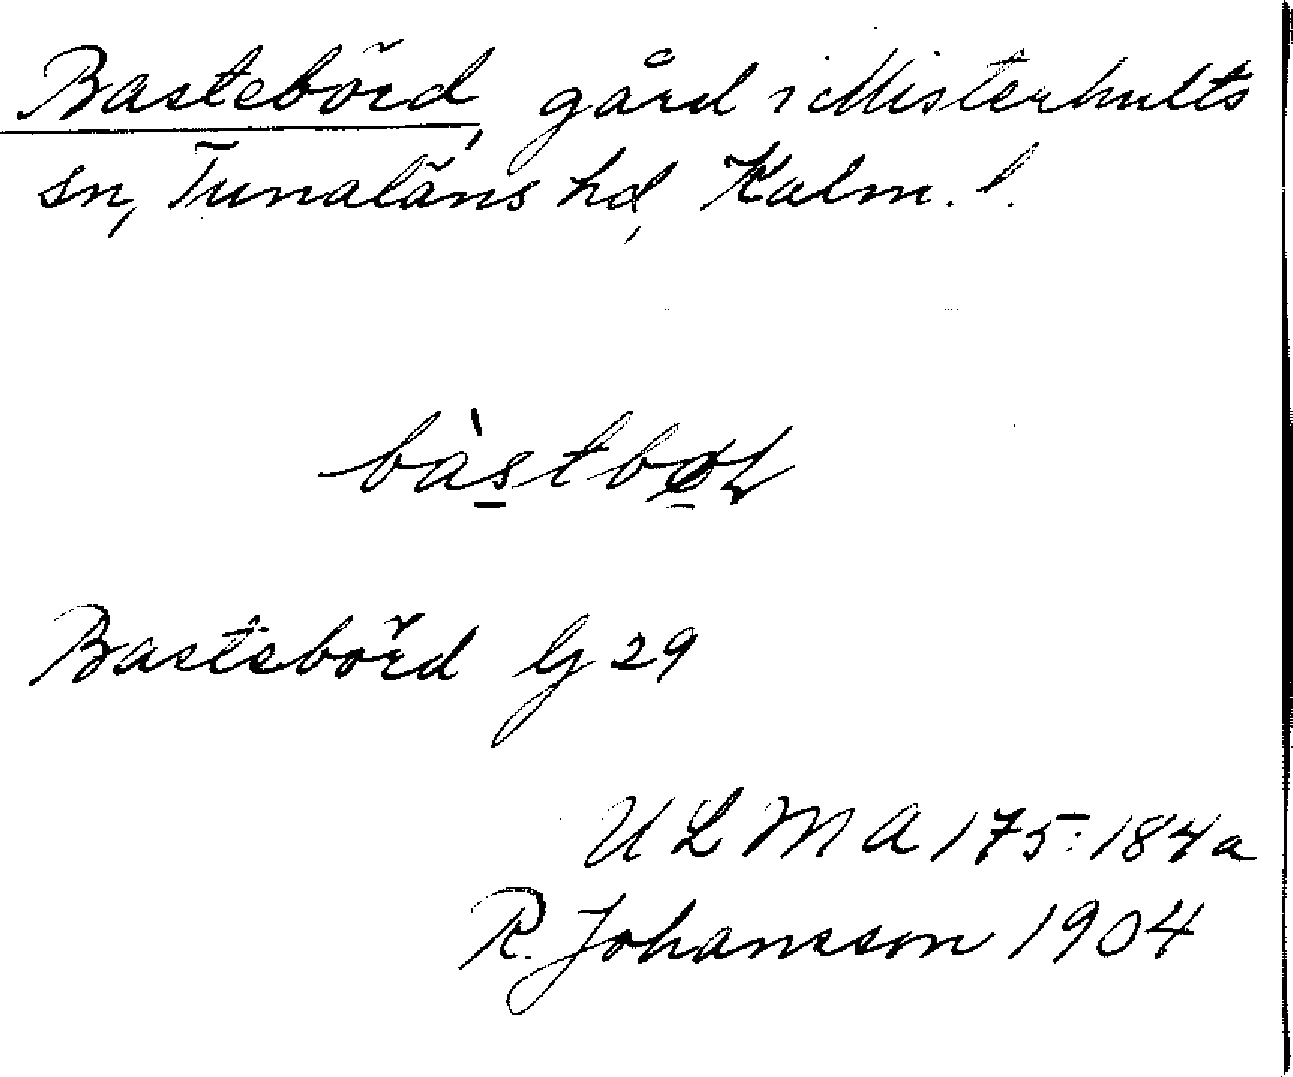 Bastebörd, gård i Misterhults
sn, Tunaläns hd, Kalm. l.
Bastebörd G 29
ULMA 175:184a
R. Johansson 1904